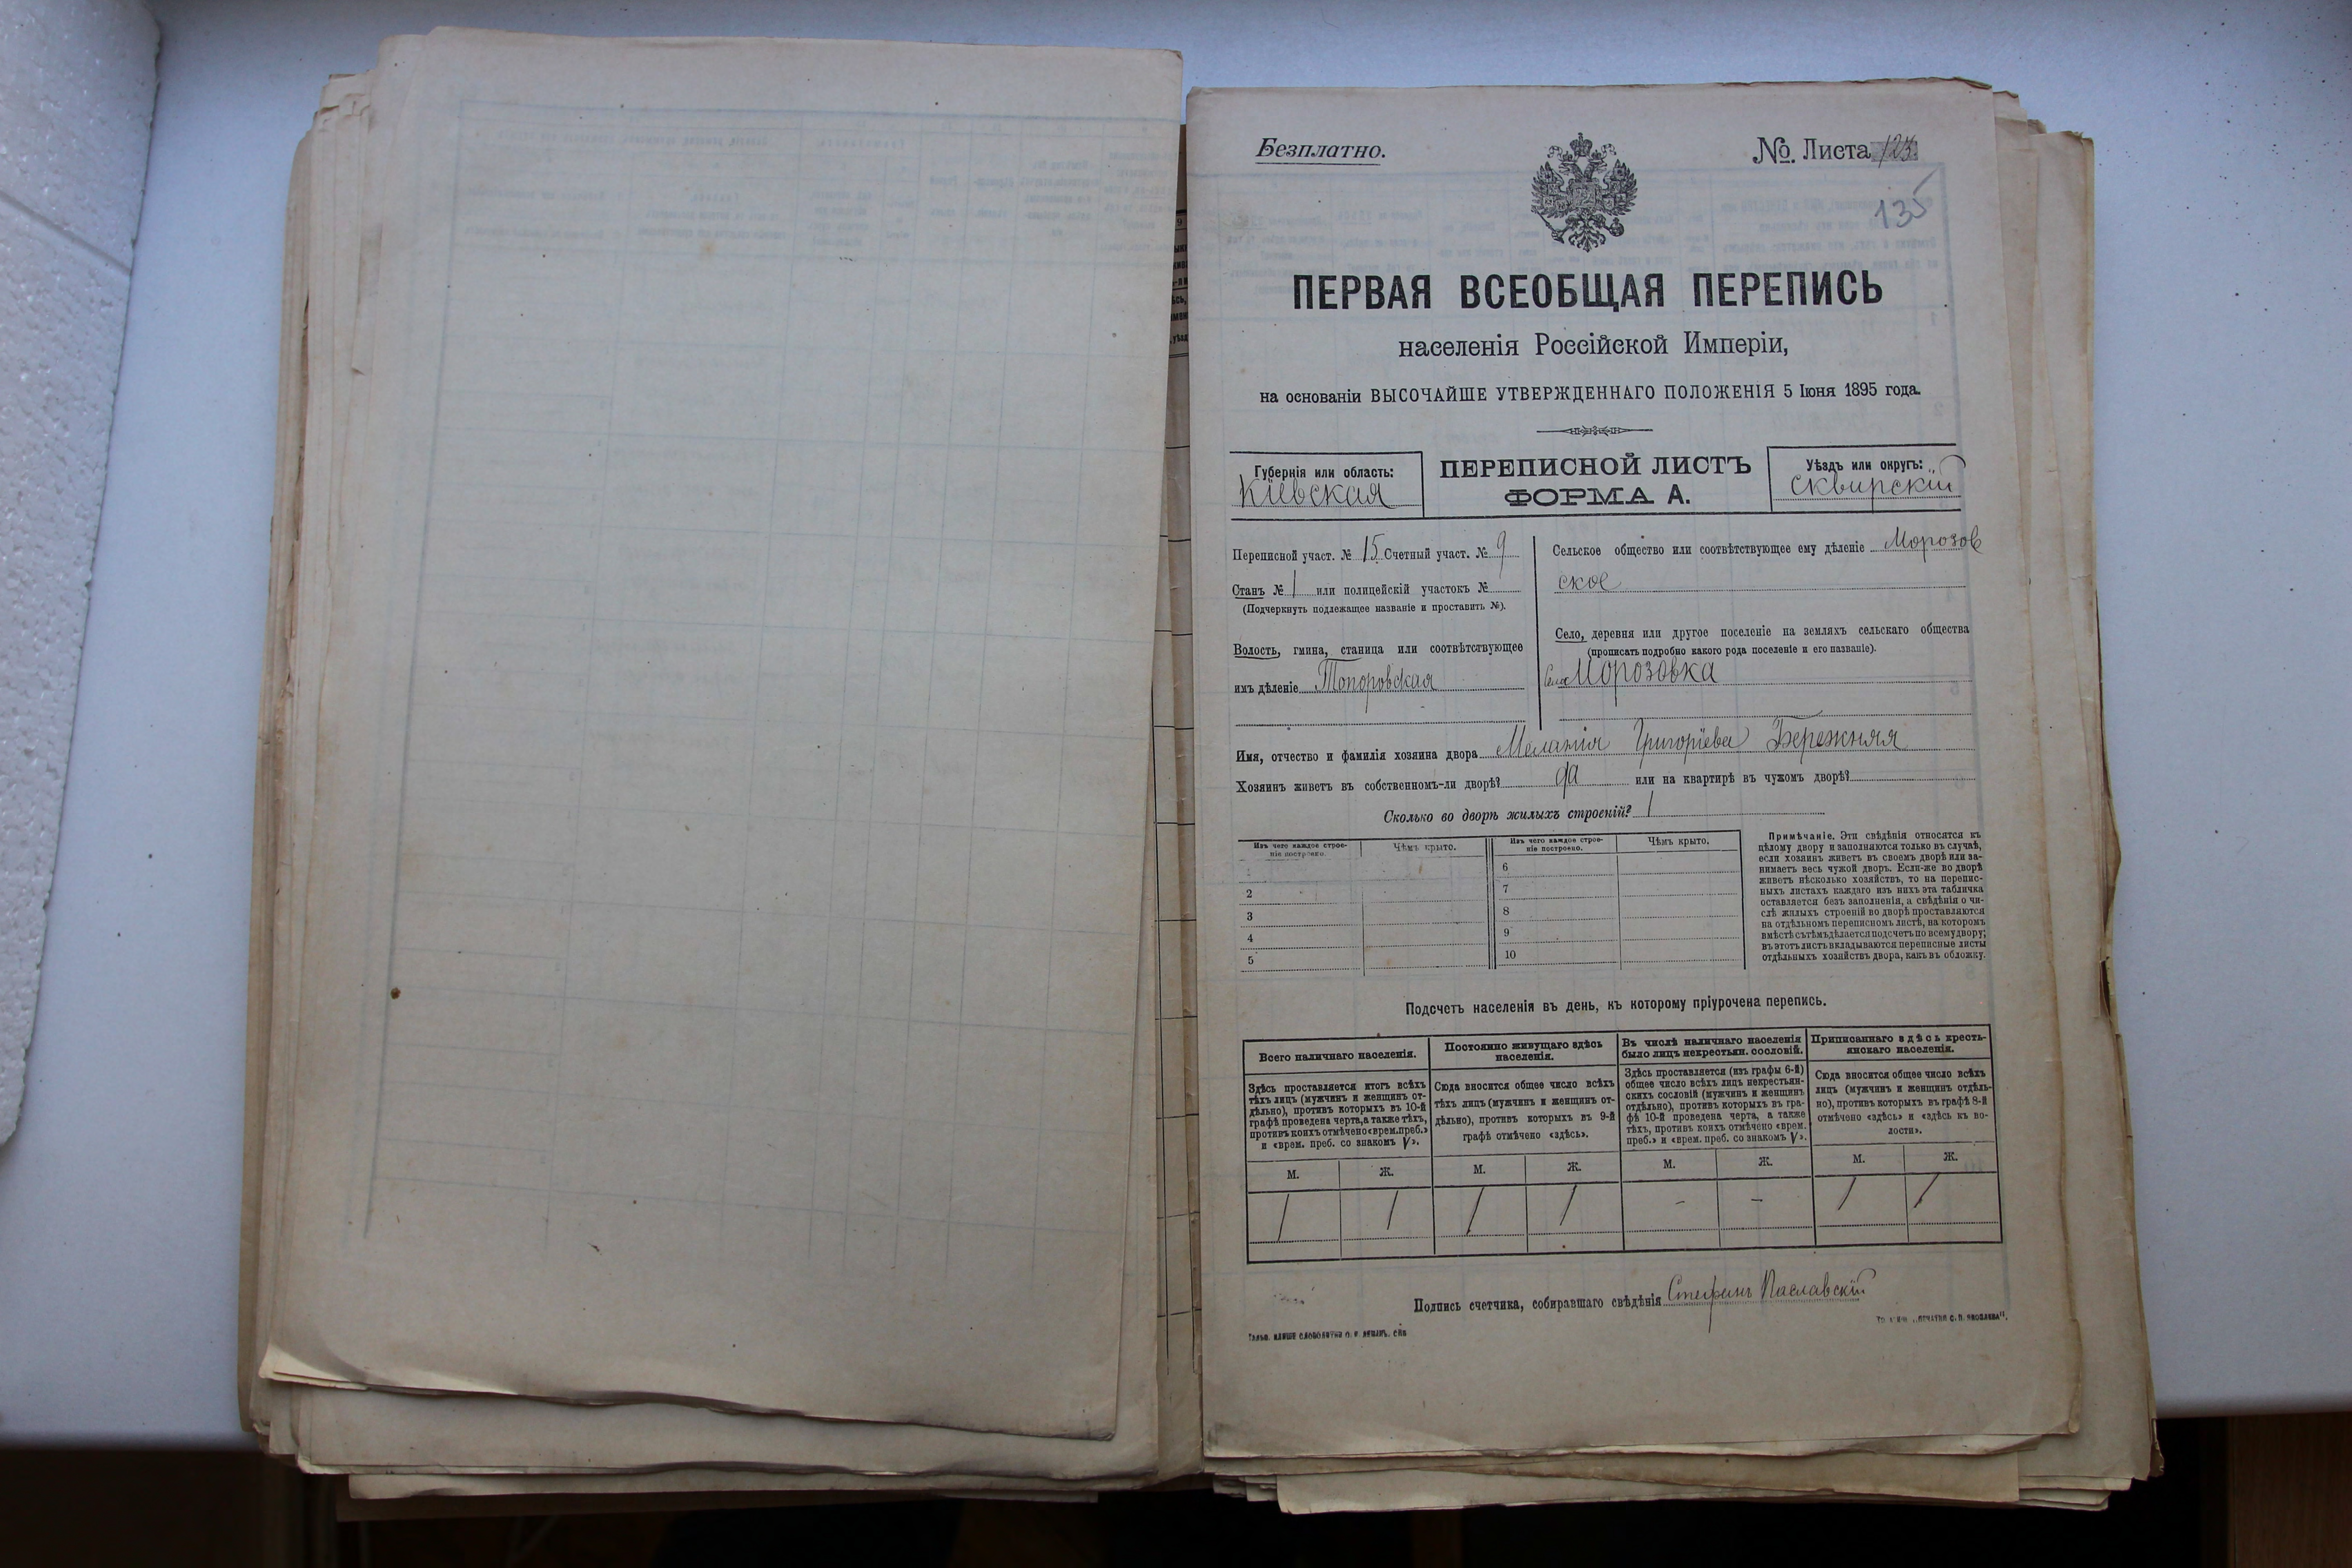 Безплатно.
№. Листа 123
135
ПЕРВАЯ ВСЕОБЩАЯ ПЕРЕПИСЬ
населенія Россійской Имперіи,
на основаніи ВЫСОЧАЙШЕ УТВЕРЖДЕННАГО ПОЛОЖЕНІЯ 5 Іюня 1895 года.
Губернія или область:
Кіевская
ПЕРЕПИСНОЙ ЛИСТЪ
ФОРМА А.
Уѣздъ или округъ:
Сквирскій
Переписной участ. № 15 Счетный участ. № 9
Станъ № 1 или полицейскій участокъ №
(Подчеркнуть подлежащее названіе и проставить №).
Волость, гмина, станица или соотвѣтствующее
имъ дѣленіе Топоровская
Сельское общество или соотвѣтствующее ему дѣленіе Морозов
ское
Село, деревня или другое поселеніе на земляхъ сельскаго общества
(прописать подробно какого рода поселеніе и его названіе).
Село Морозовка
Имя, отчество и фамилія хозяина двора Меланія Григоріева Бережняя
Хозяинъ живетъ въ собственномъ-ли дворѣ? да или на квартирѣ въ чужомъ дворѣ?
Сколько во дворѣ жилыхъ строеній? 1
Изъ чего каждое строе-
ніе построено.
Чѣмъ крыто.
Изъ чего каждое строе-
ніе построено.
Чѣмъ крыто.
1
2
3
4
5
6
7
8
9
10
Примѣчаніе. Эти свѣдѣнія относятся къ
цѣлому двору и заполняются только въ случаѣ,
если хозяинъ живетъ въ своемъ дворѣ или за-
нимаетъ весь чужой дворъ. Если-же во дворѣ
живетъ нѣсколько хозяйствъ, то на перепис-
ныхъ листахъ каждаго изъ нихъ эта табличка
оставляется безъ заполненія, а свѣдѣнія о чи-
слѣ жилыхъ строеній во дворѣ проставляются
на отдѣльномъ переписномъ листѣ, на которомъ
вмѣстѣ съ тѣмъ дѣлается подсчетъ по всему двору;
въ этотъ листъ вкладываются переписные листы
отдѣльныхъ хозяйствъ двора, какъ въ обложку.
Подсчетъ населенія въ день, къ которому пріурочена перепись.
Всего наличнаго населенія.
Здѣсь проставляется итогъ всѣхъ
тѣхъ лицъ (мужчинъ и женщинъ от-
дѣльно), противъ которыхъ въ 10-й
графѣ проведена черта, а также тѣхъ,
противъ коихъ отмѣчено «врем. преб.»
и «врем. преб. со знакомъ V».
М.
Ж.
1
1
Постоянно живущаго здѣсь
населенія.
Сюда вносится общее число всѣхъ
тѣхъ лицъ (мужчинъ и женщинъ от-
дѣльно), противъ которыхъ въ 9-й
графѣ отмѣчено «здѣсь».
М.
Ж.
1
1
Въ числѣ наличнаго населенія
было лицъ некрестьян. сословій.
Здѣсь проставляется (изъ графы 6-й)
общее число всѣхъ лицъ некрестьян-
скихъ сословій (мужчинъ и женщинъ
отдѣльно), противъ которыхъ въ гра-
фѣ 10-й проведена черта, а также
тѣхъ, противъ коихъ отмѣчено «врем.
преб.» и «врем. преб. со знакомъ V».
М.
Ж.
-
-
Приписаннаго здѣсь кресть-
янскаго населенія.
Сюда вносится общее число всѣхъ
лицъ (мужчинъ и женщинъ отдѣль-
но), противъ которыхъ въ графѣ 8-й
отмѣчено «здѣсь» и «здѣсь къ во-
лости».
М.
Ж.
1
1
Подпись счетчика, собиравшаго свѣдѣнія Стефанъ Паславскій